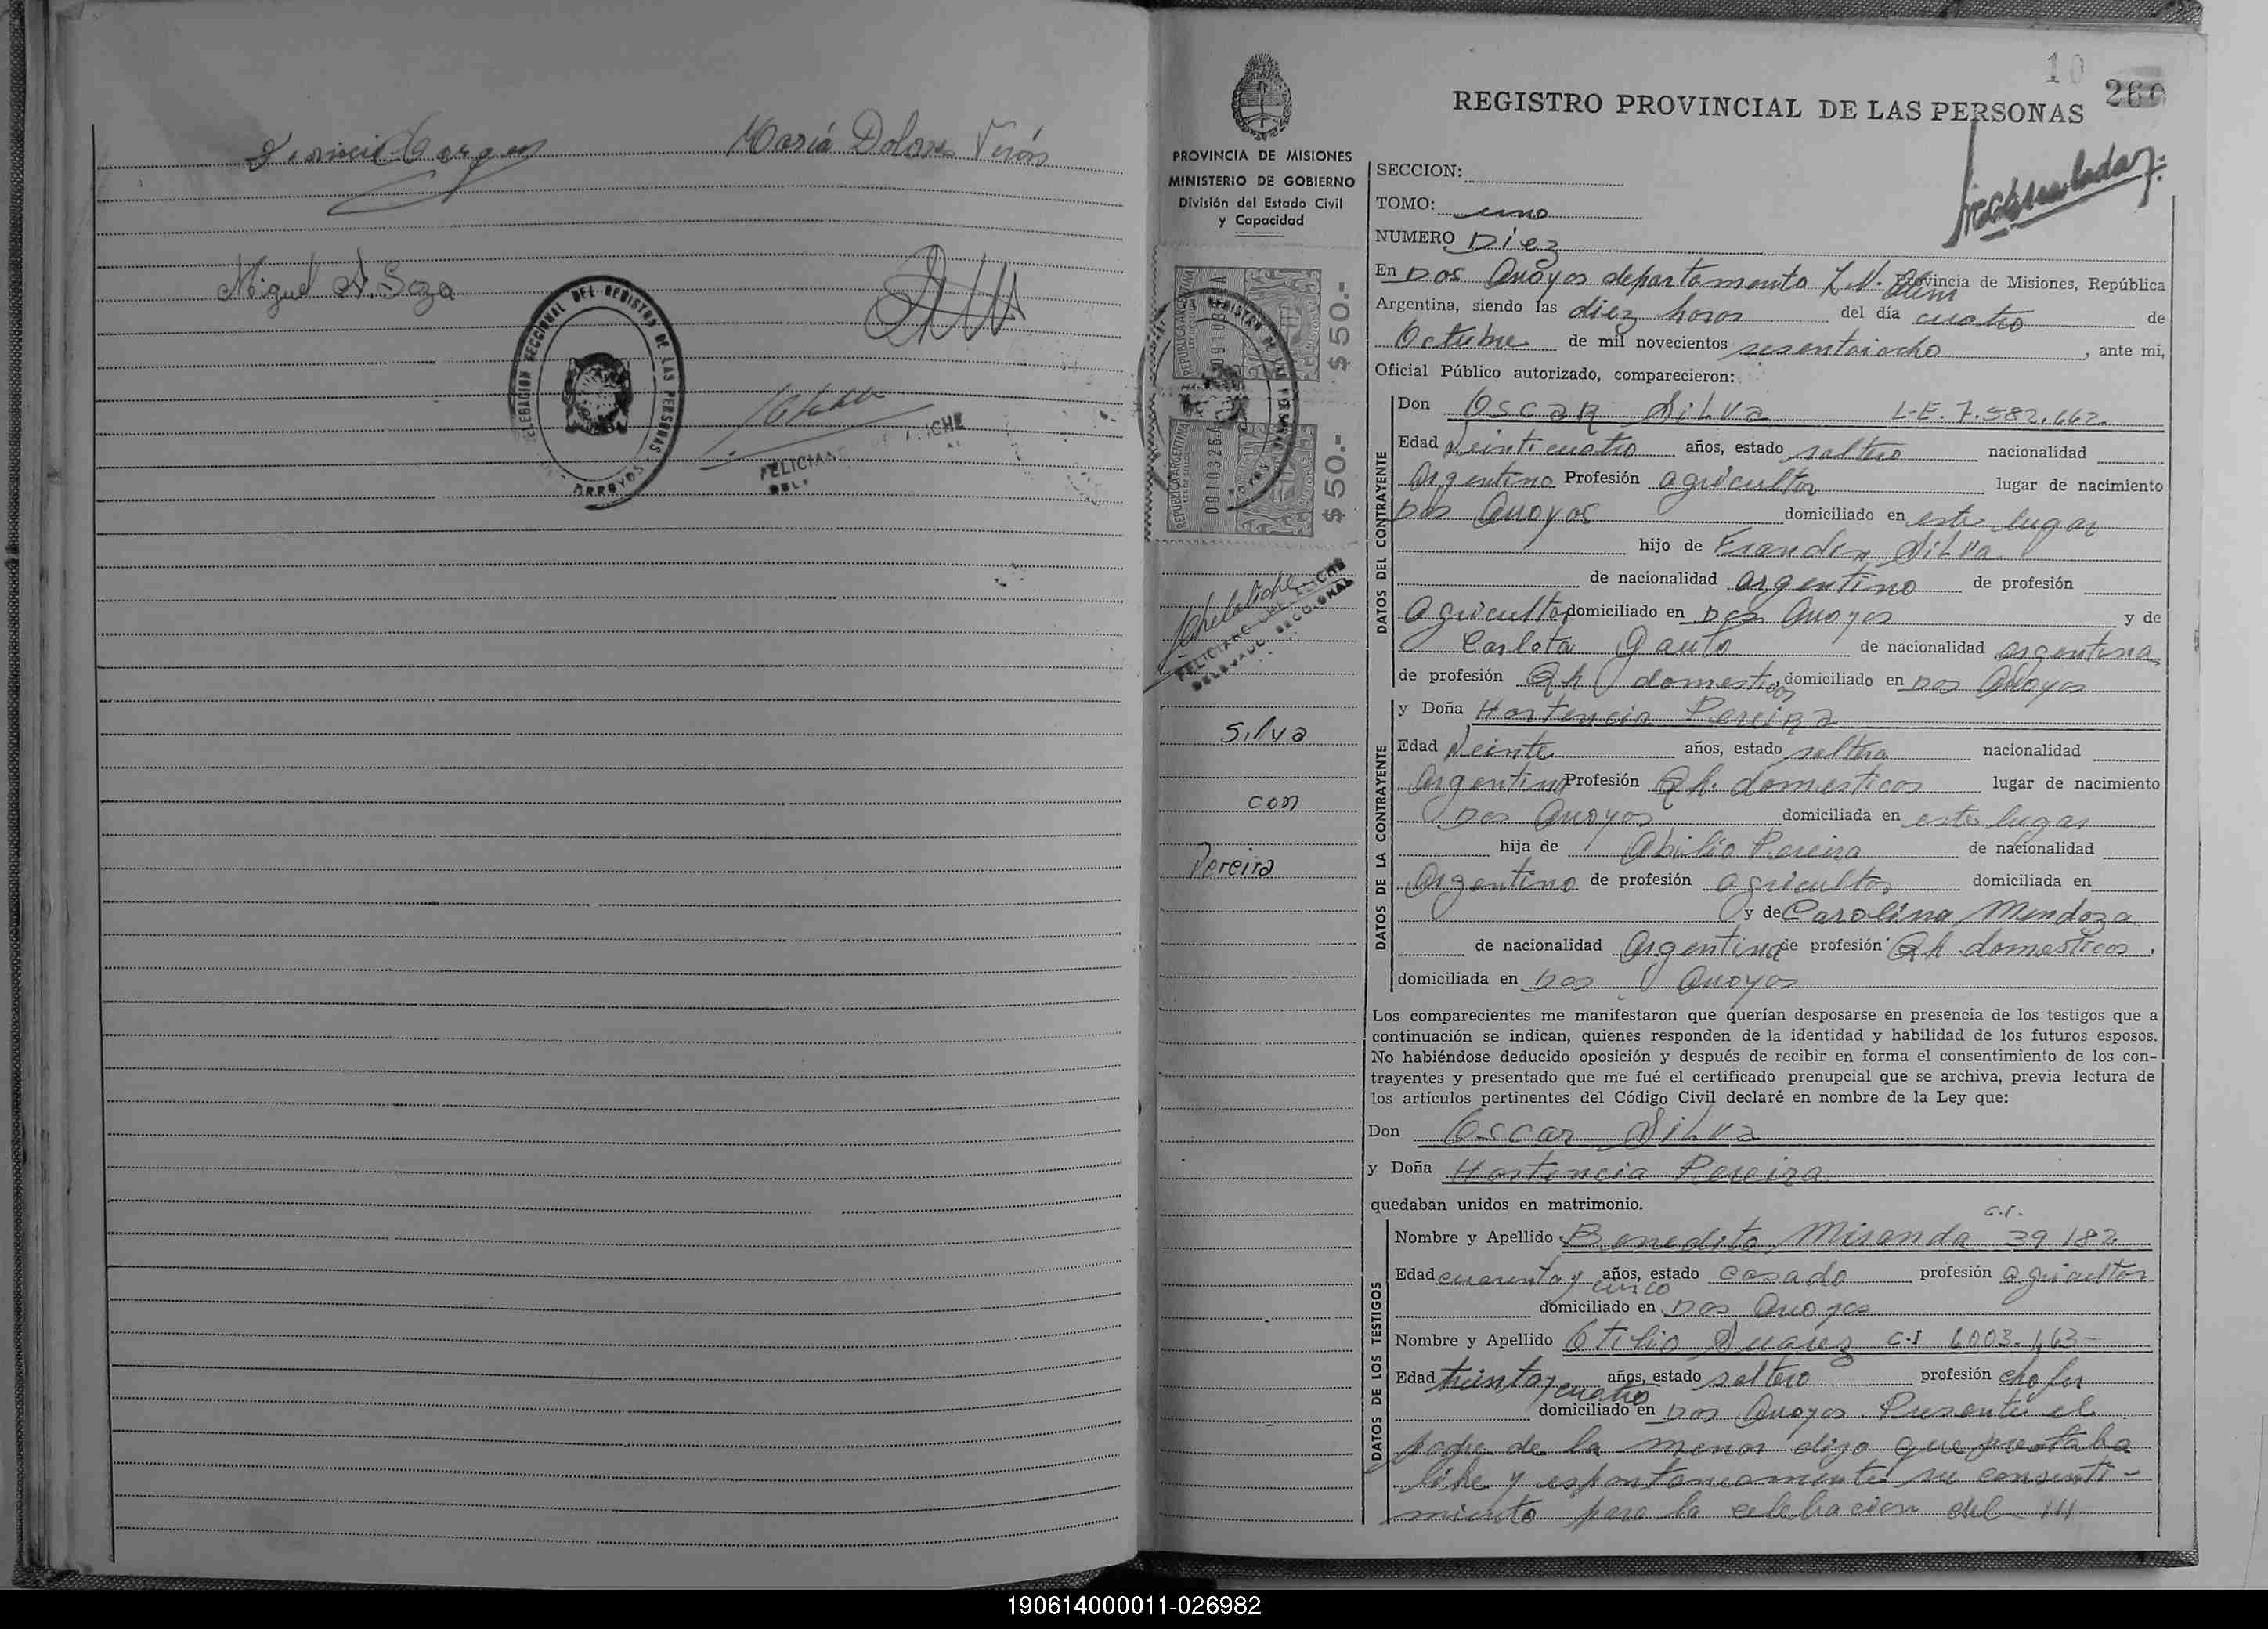 María Dolores Verón
Miguel A. Soza
DELEGACION SECCIONAL DEL REGISTRO DE LAS PERSONAS
ARROYOS
FELICIANO
10
260
REGISTRO PROVINCIAL DE LAS PERSONAS
PROVINCIA DE MISIONES
MINISTERIO DE GOBIERNO
División del Estado Civil
y Capacidad
REPUBLICA ARGENTINA
$ 50.-
REPUBLICA ARGENTINA
$ 50.-
DELEGADO SECCIONAL
Silva
con
Pereira
SECCION:
TOMO: uno
NUMERO Diez
En Dos Arroyos departamento L.N. Alem Provincia de Misiones, República
Argentina, siendo las diez horas del día cuatro de
Octubre de mil novecientos sesentaiocho, ante mi,
Oficial Público autorizado, comparecieron:
DATOS DEL CONTRAYENTE
Don Oscar Silva L-E. 7.582.662
Edad Veinticuatro años, estado soltero nacionalidad
Argentino Profesión agricultor lugar de nacimiento
Dos Arroyos domiciliado en este lugar
hijo de Silva
de nacionalidad argentino de profesión
agricultor domiciliado en Dos Arroyos y de
Carlota Gauto de nacionalidad argentina
de profesión Qh domesticos domiciliado en Dos Arroyos
DATOS DE LA CONTRAYENTE
y Doña Hortencia Pereira
Edad Veinte años, estado soltera nacionalidad
Argentina Profesión Qh. domesticos lugar de nacimiento
Dos Arroyos domiciliada en este lugar
hija de Abilio Pereira de nacionalidad
Argentino de profesión agricultor domiciliada en
y de Carolina Mendoza
de nacionalidad Argentina de profesión Qh domesticos,
domiciliada en Dos Arroyos
Los comparecientes me manifestaron que querían desposarse en presencia de los testigos que a
continuación se indican, quienes responden de la identidad y habilidad de los futuros esposos.
No habiéndose deducido oposición y después de recibir en forma el consentimiento de los con-
trayentes y presentado que me fué el certificado prenupcial que se archiva, previa lectura de
los artículos pertinentes del Código Civil declaré en nombre de la Ley que:
Don Oscar Silva
y Doña Hortencia Pereira
quedaban unidos en matrimonio.
DATOS DE LOS TESTIGOS
Nombre y Apellido Benedito Miranda C.I. 39182
Edad cuarenta y cinco años, estado casado profesión agricultor
domiciliado en Dos Arroyos
Nombre y Apellido Otilio Suarez C.I 6003.163-
Edad treinta y cuatro años, estado soltero profesión chofer
domiciliado en Dos Arroyos Presente el
padre de la menor dijo que prestaba
libre y espontaneamente su consenti-
miento para la celebracion del
190614000011-026982